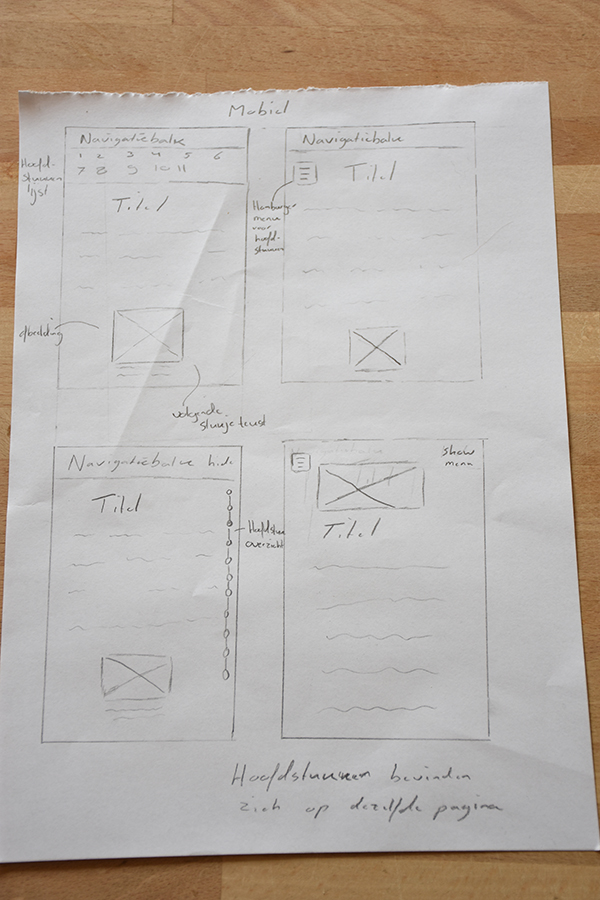 Mobiel
Navigatiebalk
1 2 3 4 5 6
7 8 9 10 11
Hoofd-
stukken
lijst
Titel
afbeelding
volgende
stukje tekst
Navigatiebalk
Titel
Hamburger
menu
voor
hoofd-
stukken
Navigatiebalk hide
Titel
Hoofdstuk
overzicht
show
menu
Titel
Hoofdstukken bevinden
zich op dezelfde pagina